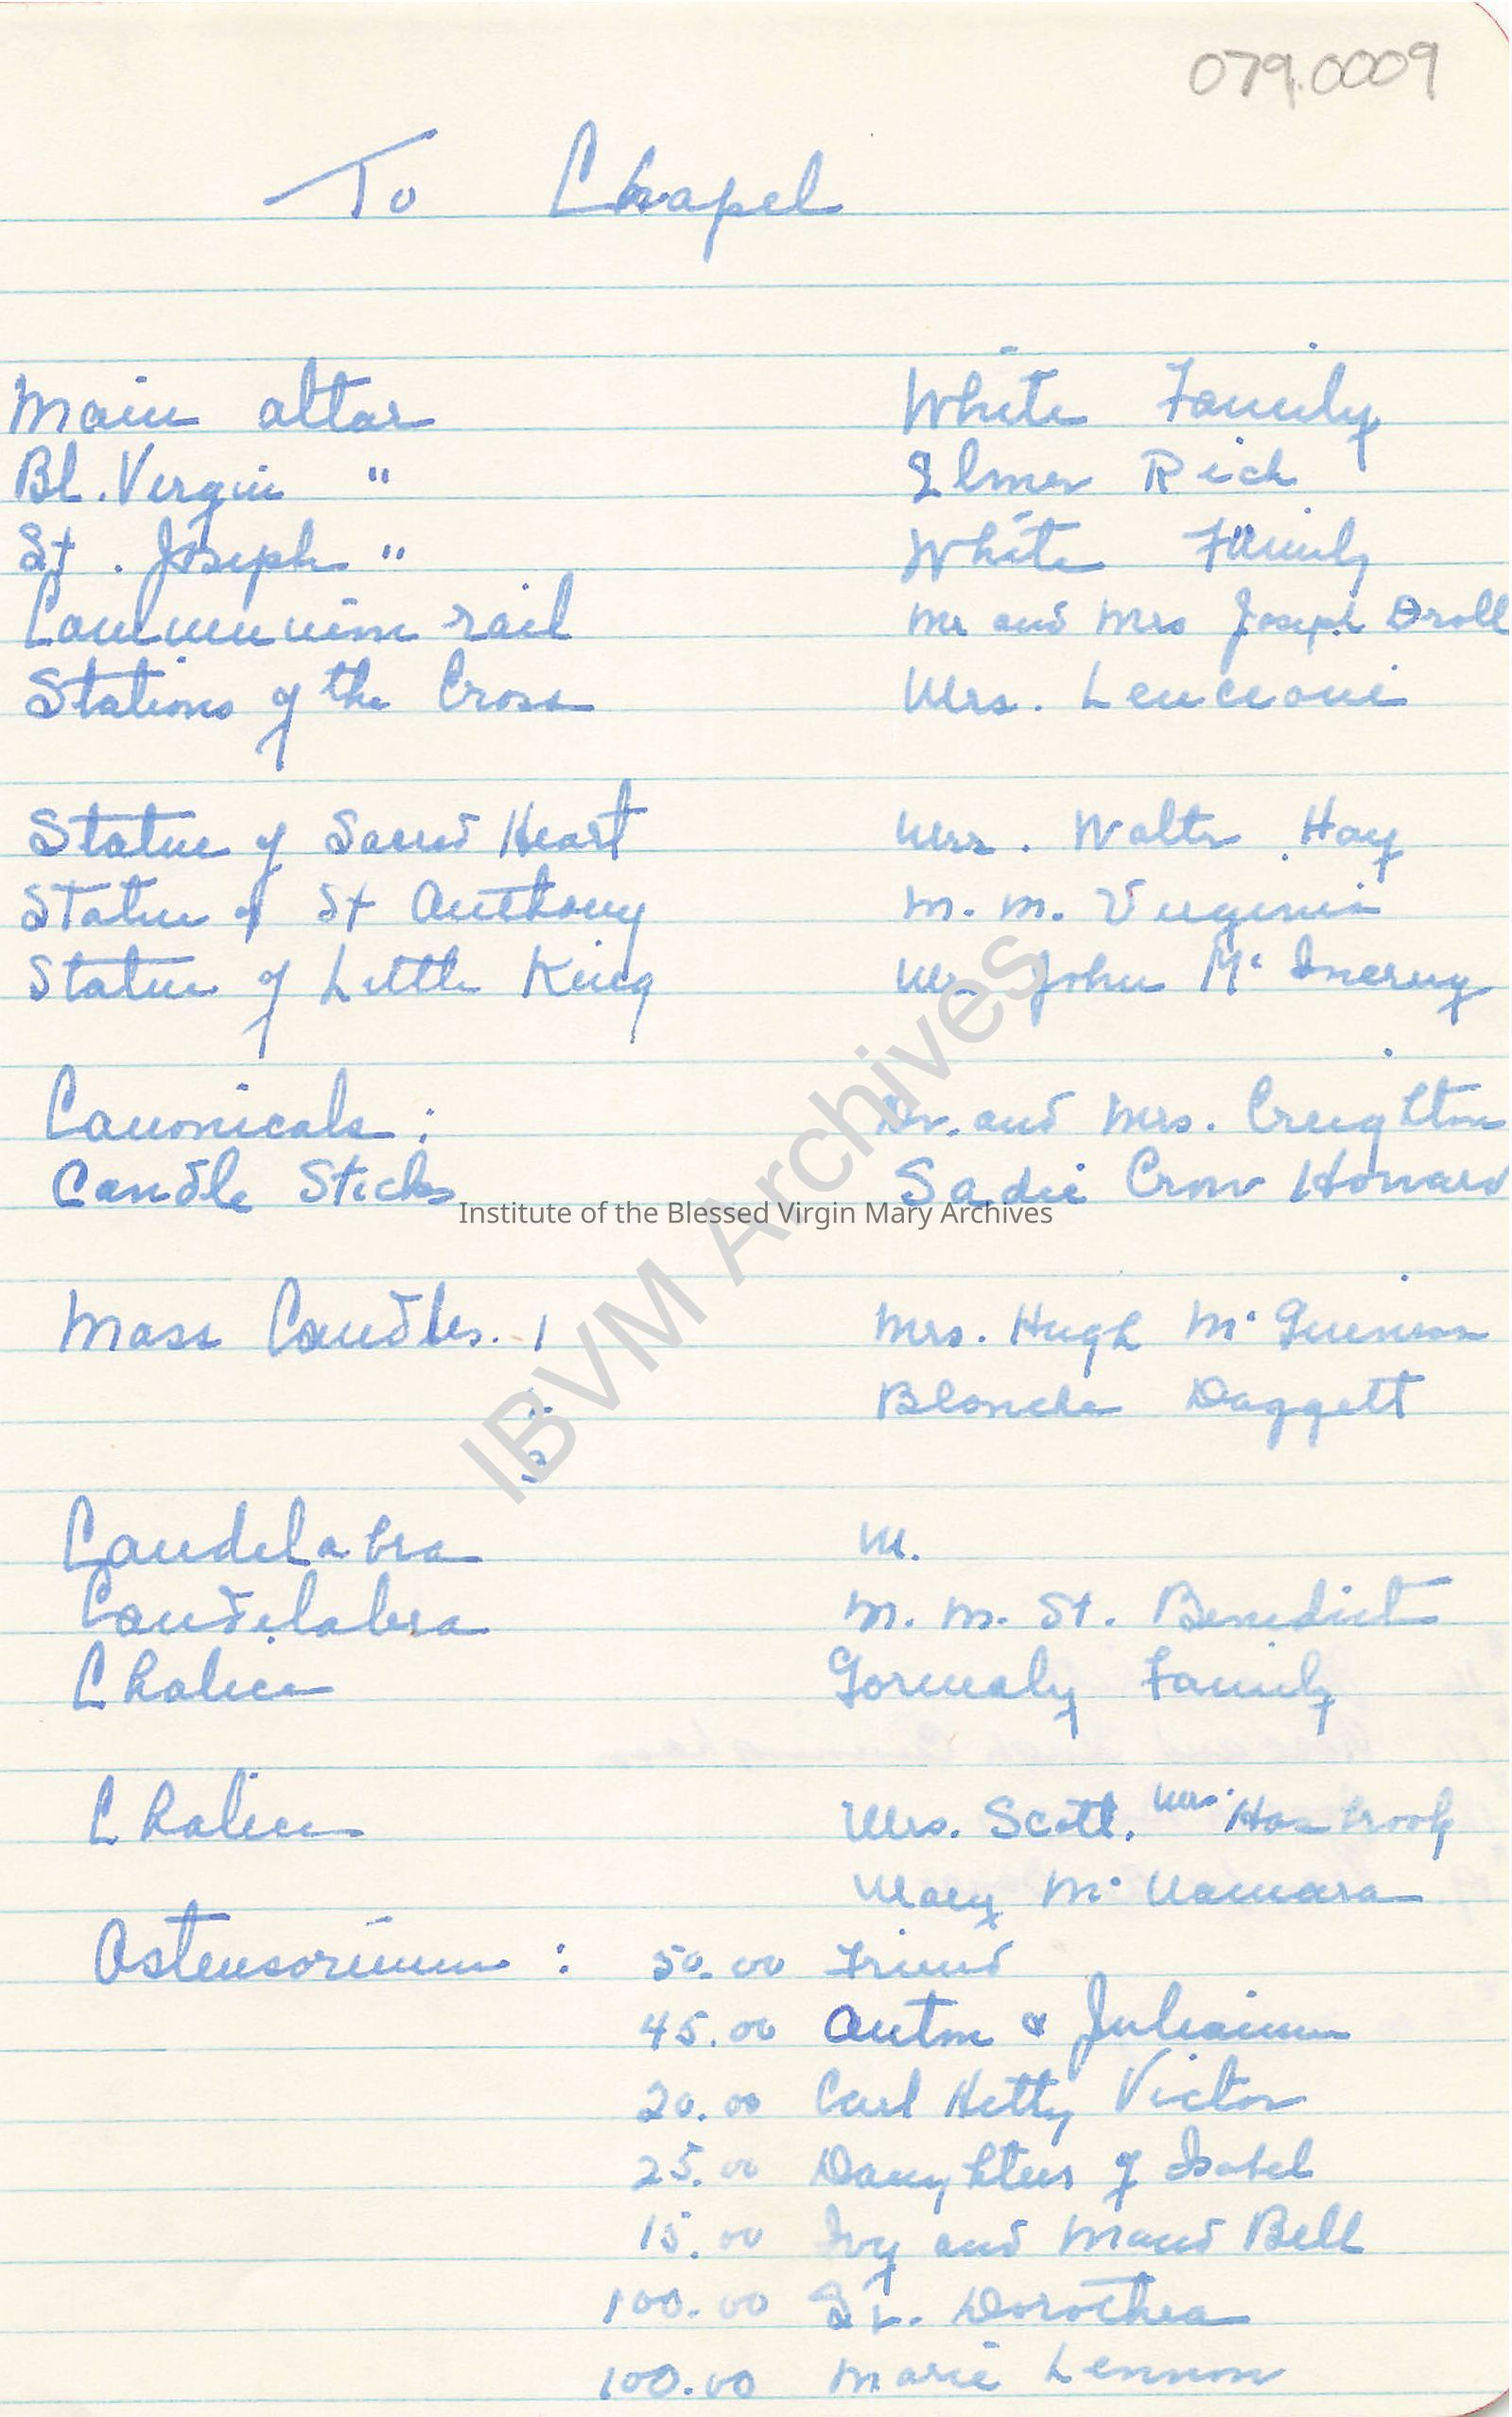 079.0009
To Chapel
Main altar White Family
Bl. Virgin " Elmer Rich
St. Joseph " White Family
Communion rail Mr and Mrs Joseph Droll
Stations of the Cross Mrs. Lencioni
Statue of Sacred Heart Mrs. Walter Hay
Statue of St Anthony M. M. Virginia
Statue of Little King Mr John McInerny
Canonicals: Dr. and Mrs. Creighton
Candle Sticks Sadie Crow Howard
Institute of the Blessed Virgin Mary Archives
IBVM Archives
Mass Candles. 1 Mrs. Hugh
Blanche Daggett
3
Candelabra M.
Candelabra M. M. St. Benedict
Chalice Gormaly Family
Chalice Mrs. Scott. Mrs. Hasbrook
Mary McNamara
Ostensorium: 50.00 Friend
45.00 Anton & Juliann
20.00 Carl Hetty Victor
25.00 Daughters of Isabel
15.00 Ivy and Maud Bell
100.00 Sr. Dorothea
100.00 Marie Lennon